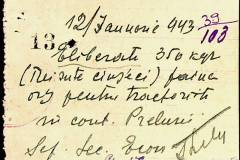 12/Ianuarie 943 39/103
13
Eliberati 350 kgr
(Treisute cinzeci) faina
orz pentru tractoristi
in cont.
Sef. Sec. Econ